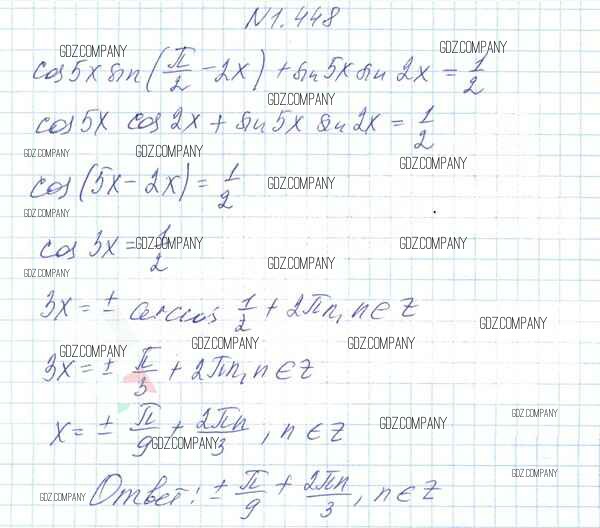 N1.448
GDZ.COMPANY GDZ.COMPANY
cos5x sin(π/2 - 2x) + sin5x sin 2x = 1/2
GDZ.COMPANY
cos5x cos2x + sin5x sin2x = 1/2
GDZ.COMPANY GDZ.COMPANY GDZ.COMPANY
cos(5x - 2x) = 1/2
GDZ.COMPANY
GDZ.COMPANY
cos 3x = 1/2
GDZ.COMPANY GDZ.COMPANY
GDZ.COMPANY GDZ.COMPANY
3x = ± arccos 1/2 + 2πn, n ∈ Z
GDZ.COMPANY
GDZ.COMPANY GDZ.COMPANY GDZ.COMPANY
3x = ± π/3 + 2πn, n ∈ Z
x = ± π/9 + 2πn/3, n ∈ Z
GDZ.COMPANY GDZ.COMPANY GDZ.COMPANY
GDZ.COMPANY
Ответ: ± π/9 + 2πn/3, n ∈ Z
GDZ.COMPANY